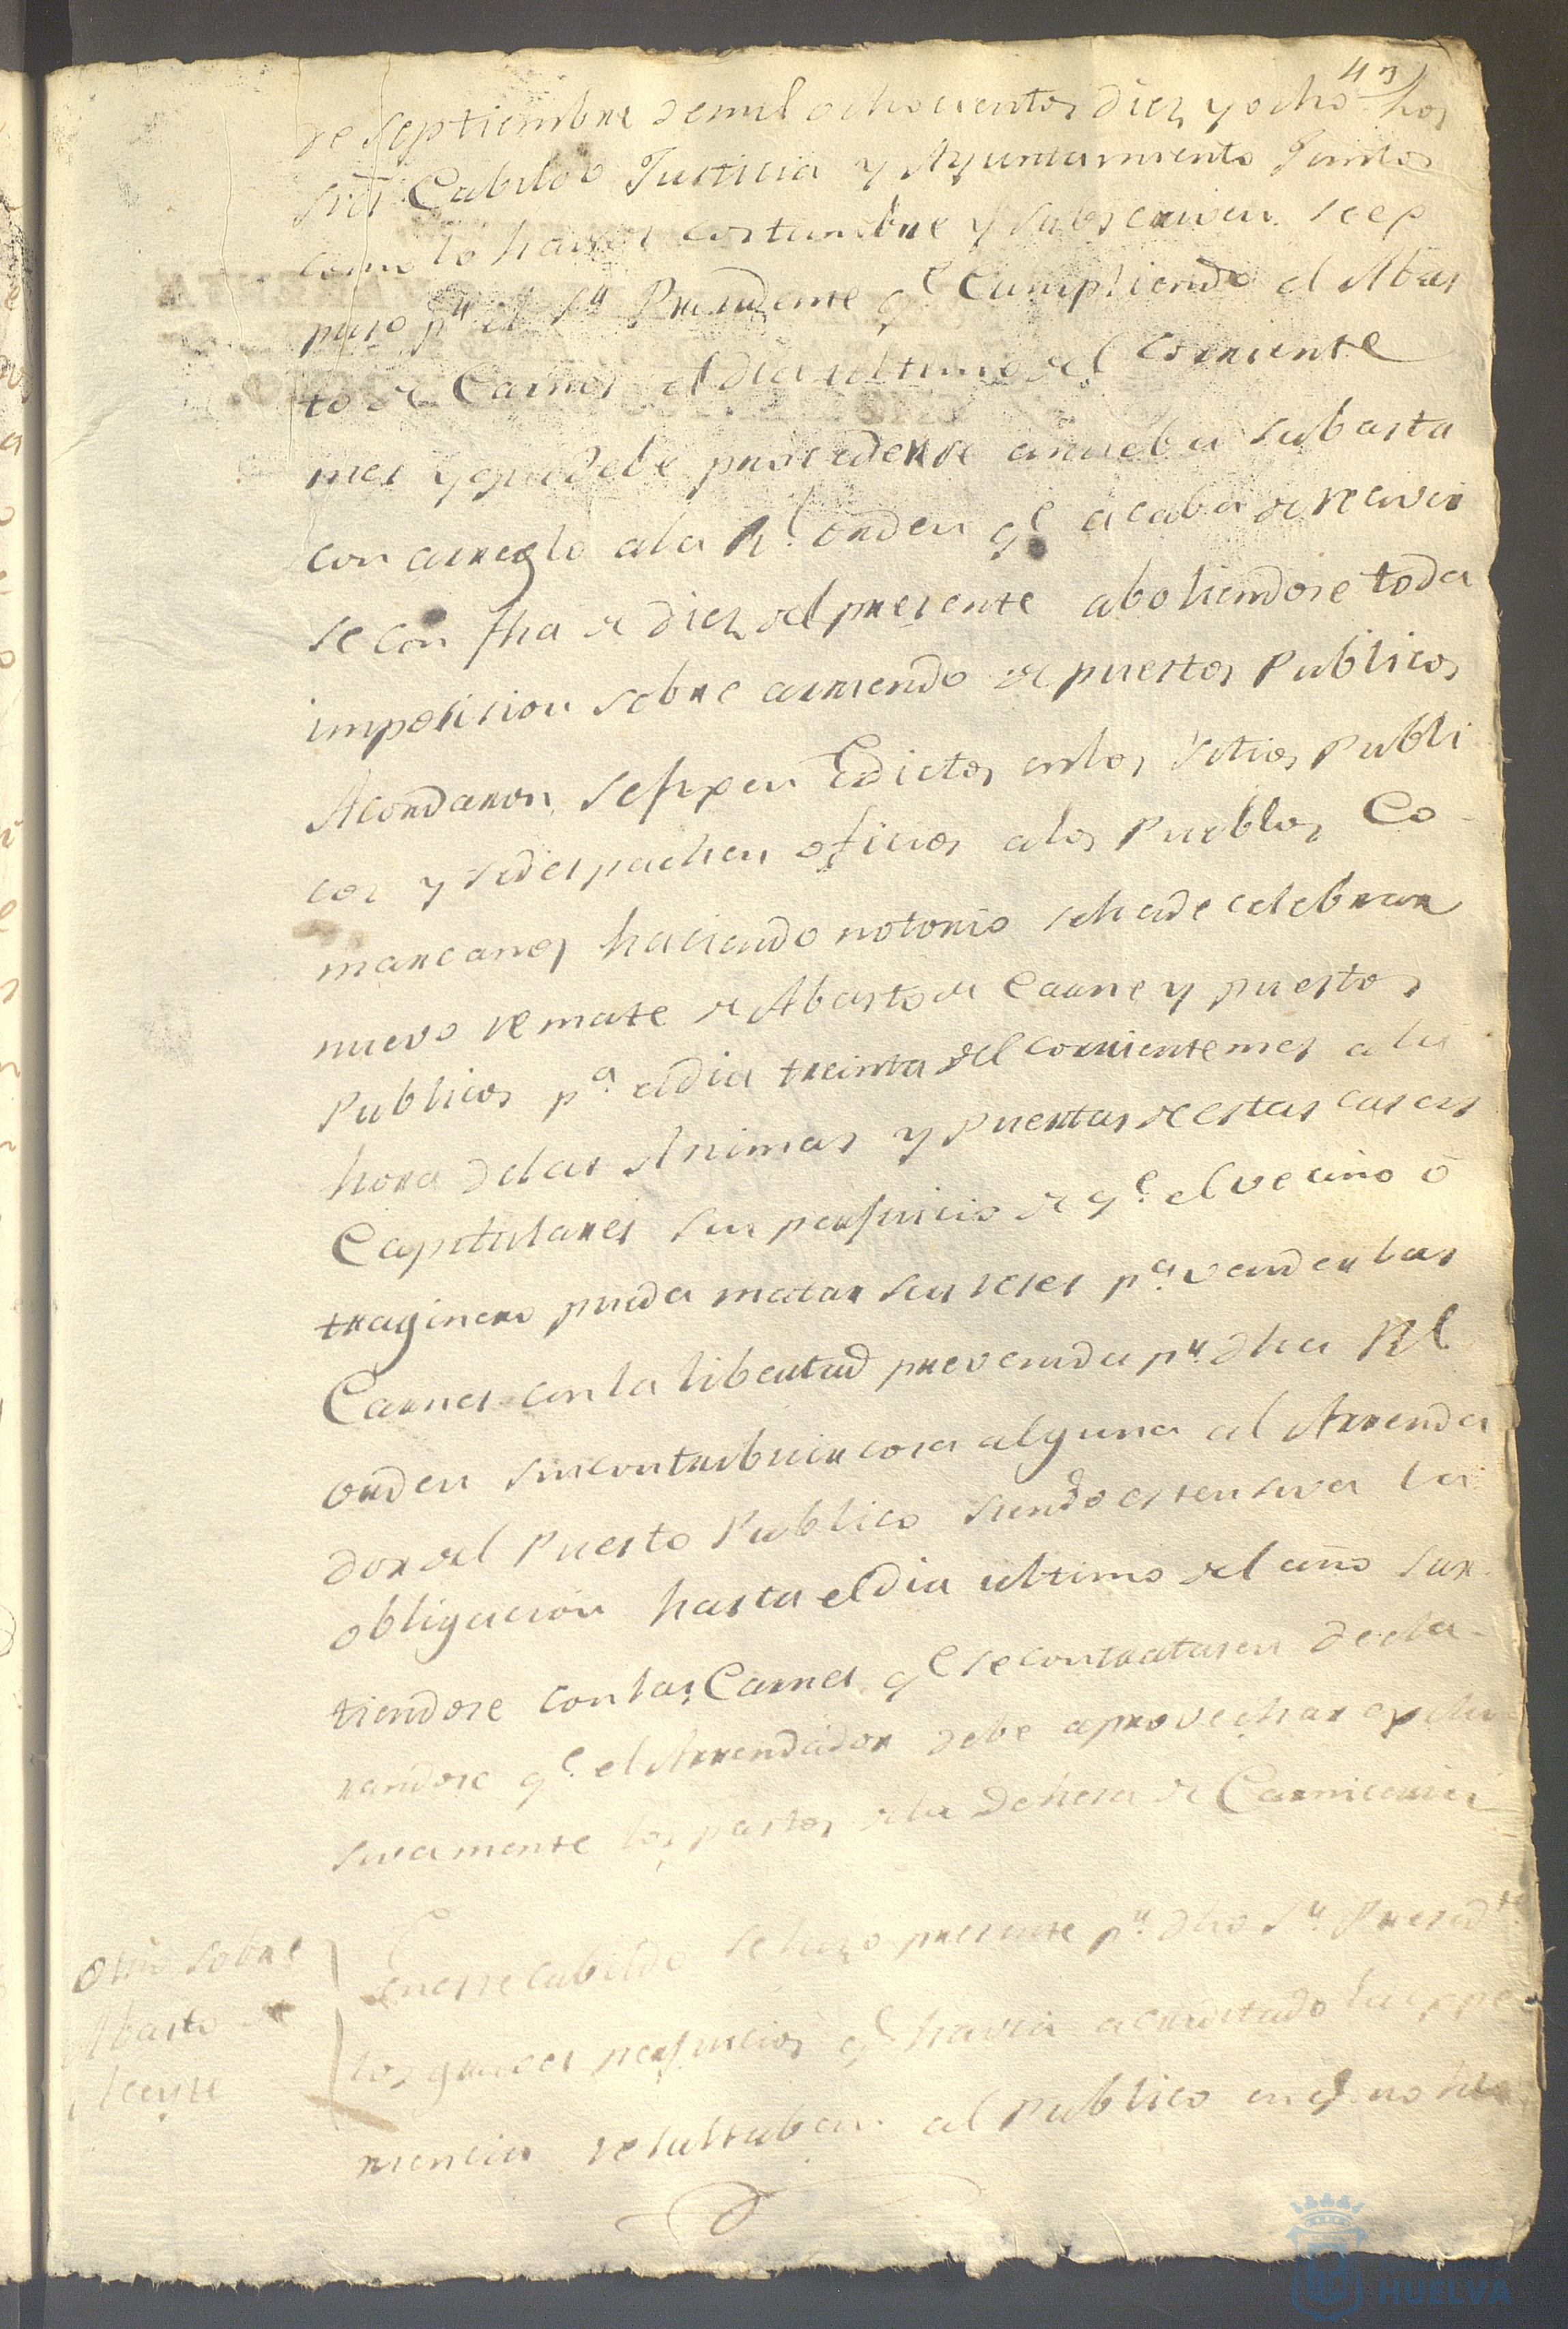 43
de Septiembre de mil ochocientos diez y ocho los
sres Cabildo Justicia y Ayuntamiento Juntos
como lo han de costumbre y subscriven se ex
puso pr el Sr Presidente qe Cumpliendo el Abas
to de Carnes el dia ultimo del Corriente
mes y que debe procederse a nueba subasta
con arreglo a la Rl orden qe acaba de recivir
se con fha de diez del presente aboliendose toda
imposicion sobre arriendo de puestos Publicos
Acordaron se fixen Edictos en los sitios Publi
cos y se despachen oficios a los Pueblos Co-
marcanos haciendo notorio se ha de celebrar
nuevo remate de Abasto de Carne y puestos
Publicos pa el dia treinta del corriente mes a la
hora de las Animas y Puertas de estas casas
Capitulares sin perjuicio de qe el vecino ó
traginero pueda matar sus reses pa vender las
Carnes con la libertad prevenida pr dha Rl
orden sin contribuir cosa alguna al Arrenda
dor del Puesto Publico siendo estensiva la
obligacion hasta el dia ultimo del año sur-
tiendose con las Carnes qe se contratasen decla-
randose qe el Arrendador debe aprovechar exclu-
sivamente los pastos de la Dehesa de Carniceria
Otro sobre
Abasto de
Aceyte
En este cabildo se hizo presente pr dho Sr Presidte
los graves perjuicios qe havia acreditado la expe
riencia resultaban al Publico en qe no
HUELVA